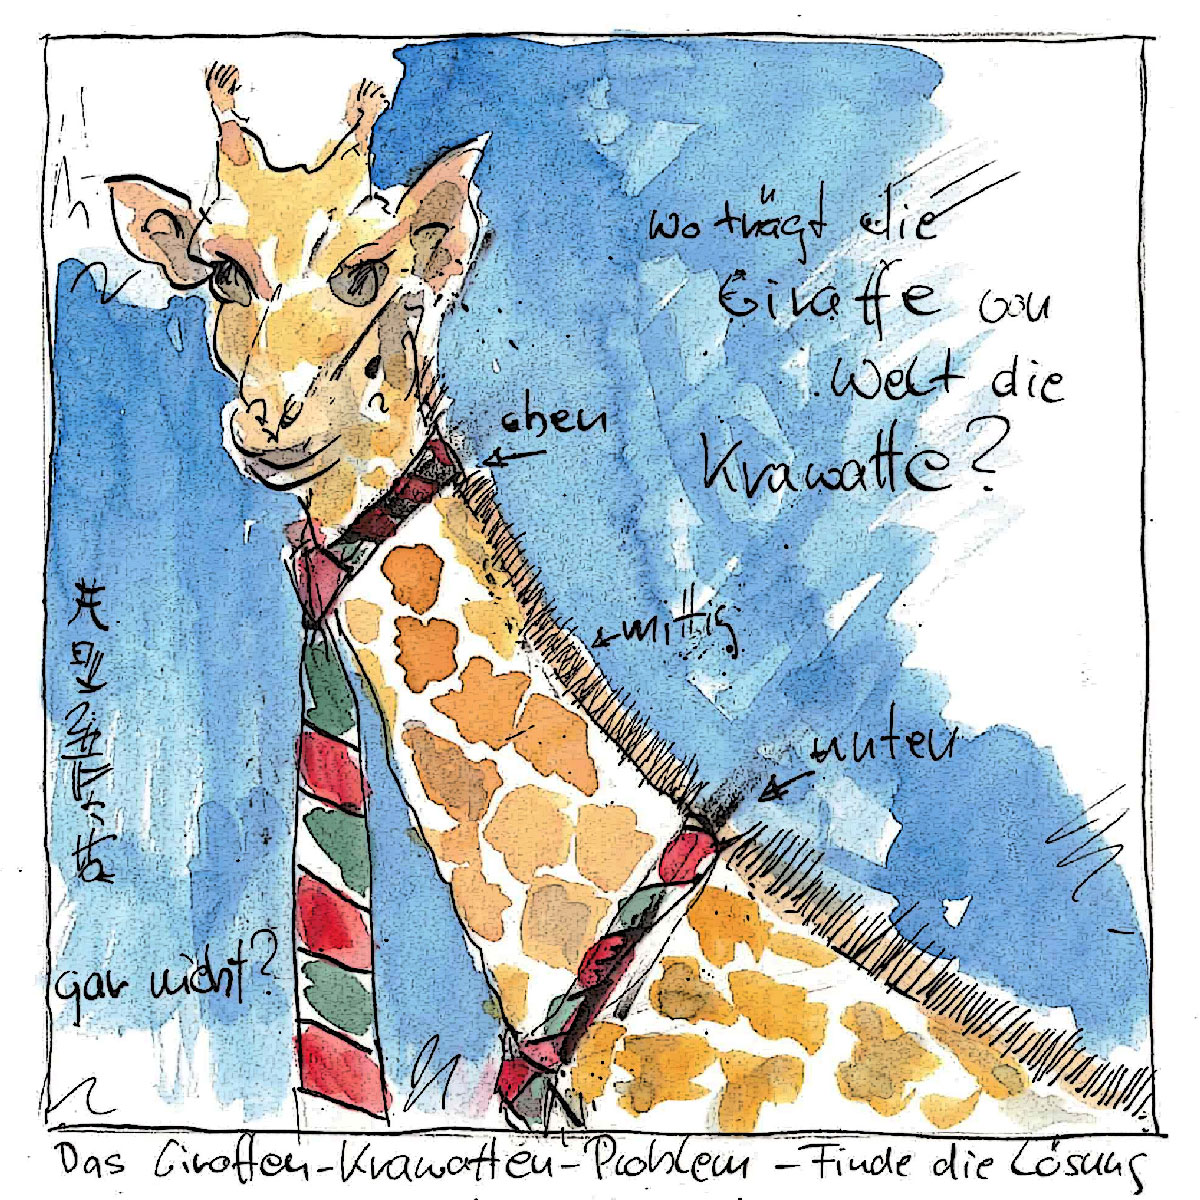 wo trägt die
Giraffe von
Welt die
Krawatte?
oben
mittig
unten
gar nicht?
Das Giraffen-Krawatten-Problem - Finde die Lösung